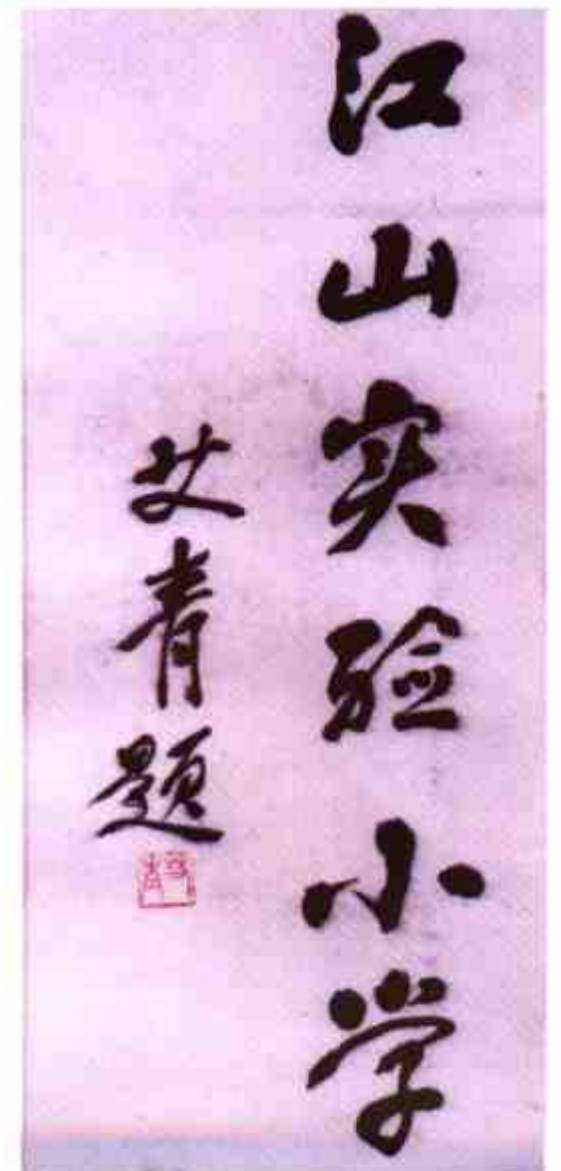 江山实验小学
艾青题